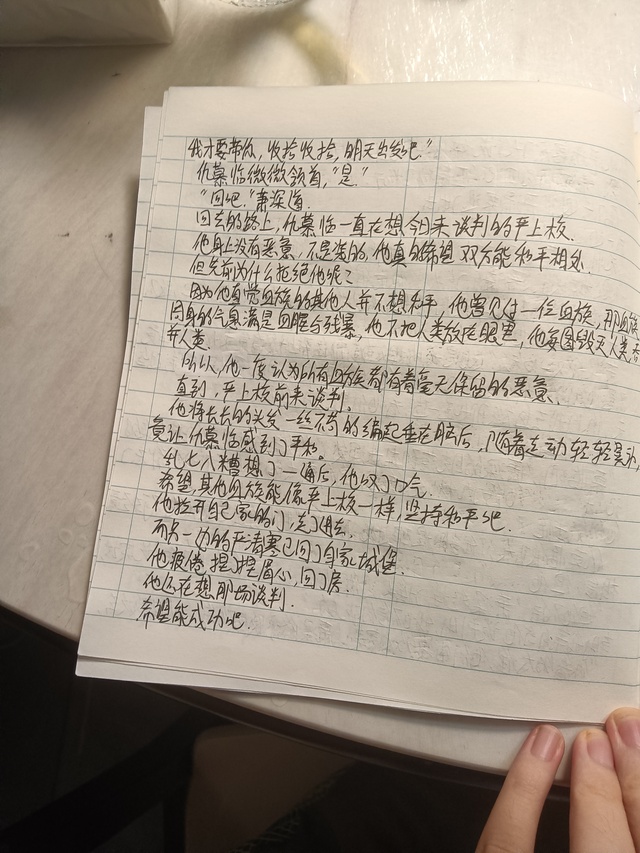 我才要带你，收拾收拾，明天出发吧."
仇慕临微微颔首，"是."
"回吧."萧深道.
回去的路上，仇慕临一直在想今日来谈判的严上校.
他身上没有恶意，不是装的，他真的希望双方能和平相处.
但先前为什么拒绝他呢？
因为他直觉血族的其他人并不想和平，他曾见过一位血族，那血族
周身的气息满是血腥与残暴，他不把人类放在眼里，他每图毁灭人类，吞
并人类.
所以，他一度认为所有血族都有着毫无保留的恶意.
直到，严上校前来谈判.
他将长长的头发一丝不苟的编起垂在脑后，随着走动轻轻晃
竟让仇慕临感到了平和。
乱七八糟想了一通后，他叹了口气.
希望，其他血族能像严上校一样，坚持和平吧.
他拉开自己家的门，走了进去.
而另一边的严清寒已回了自家城堡.
他疲倦捏了捏眉心，回了房.
他还在想那场谈判.
希望能成功吧.